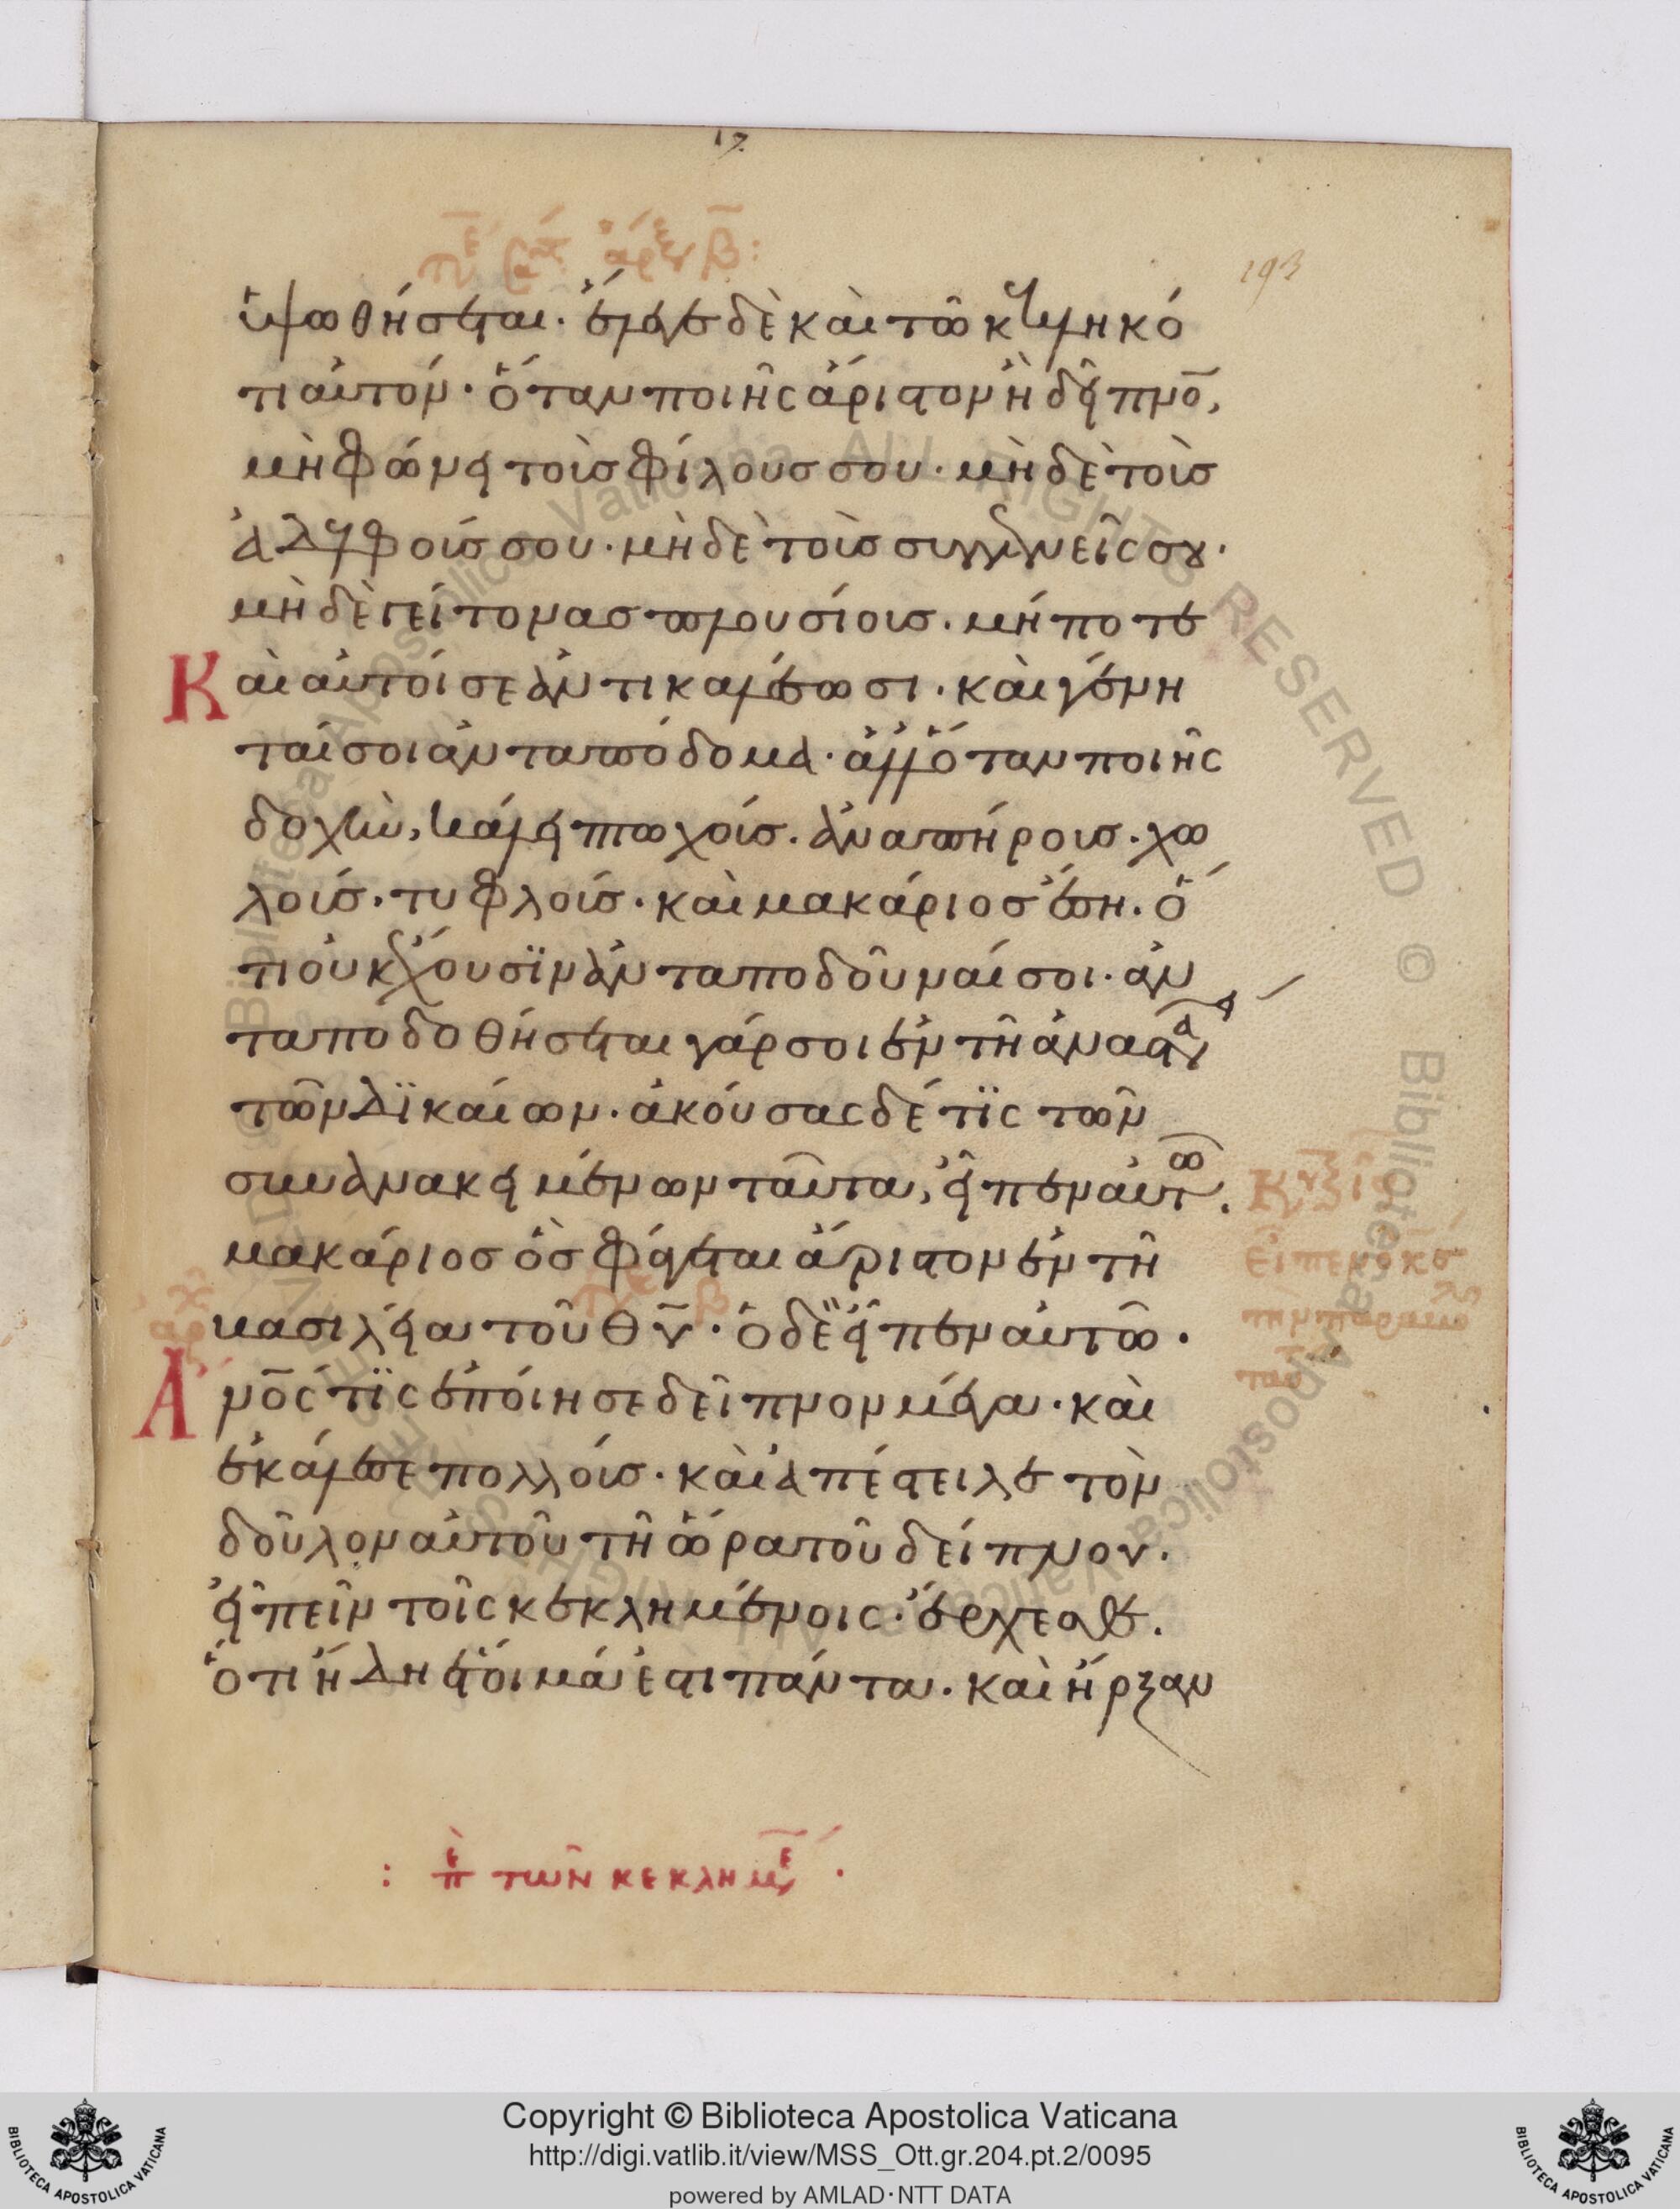 17
193
ὑψωθήσεται· ἔλεγε δὲ καὶ τῶ κεκληκό
τι αὐτόν· ὅταν ποιῆς ἄριστον ἢ δεῖπνο̄,
μὴ φώνει τοὺς φίλους σου· μὴ δὲ τοὺς
ἀδελφούς σου· μὴ δὲ τοὺς συγγενεῖς σου·
μὴ δὲ γείτονας πλουσίους· μήποτε
Καὶ αὐτοί σε ἀντικαλέσωσι· καὶ γένη
ταί σοι ἀνταπόδομα· ἀλλ' ὅταν ποιῆς
δοχὴν, κάλει πτωχούς· ἀναπήρους· χω
λούς· τυφλούς· καὶ μακάριος ἔση· ὅ
τι οὐκ ἔχουσϊν ἀνταποδοῦναί σοι· ἀν
ταποδοθήσεται γάρ σοι ἐν τῆ ἀναστα
τῶν δϊκαίων· ἀκούσας δέ τϊς τῶν
συνανακειμένων ταῦτα, εἶπεν αὐτῶ.
μακάριος ὃς φάγεται ἄριστον ἐν τῆ
βασιλεία τοῦ θ̄υ· ὁ δὲ εἶπεν αὐτῶ·
Ἄνο̄ς τϊς ἐποίησε δεῖπνον μέγα· καὶ
ἐκάλεσε πολλούς· καὶ ἀπέστειλε τὸν
δοῦλον αὐτοῦ τῆ ὥρα τοῦ δείπνου·
εἰπεῖν τοῖς κεκλημένοις· ἔρχεσθε·
ὅτι ἤδη ἕτοιμά ἐστι πάντα· καὶ ἤρξαν
εἶπεν ὁ κς
την παραβο
: π̄ε τῶν κεκλημε ·
Copyright © Biblioteca Apostolica Vaticana
http://digi.vatlib.it/view/MSS_Ott.gr.204.pt.2/0095
powered by AMLAD·NTT DATA
BIBLIOTECA APOSTOLICA VATICANA
BIBLIOTECA APOSTOLICA VATICANA